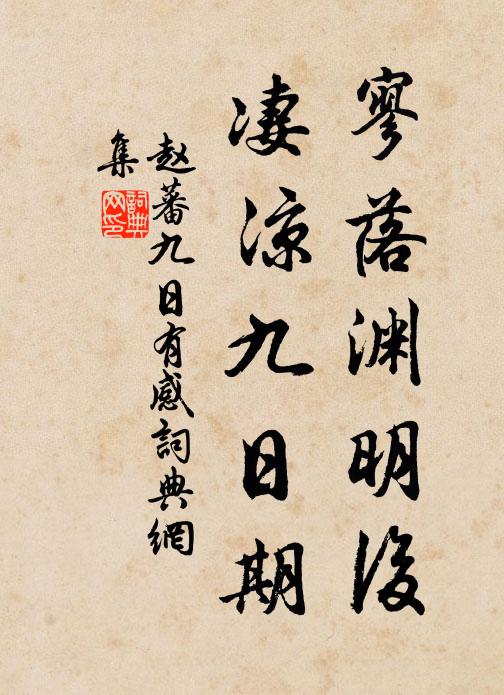 寥落渊明后
凄凉九日期
赵蕃九日有感詞典網
集
詞典
网印